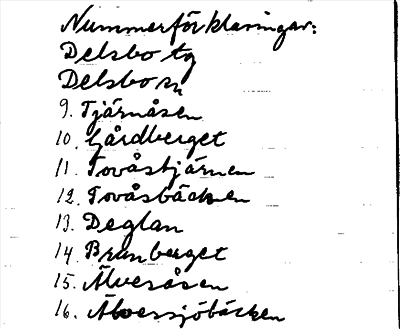 Nummerförklaringar:
Delsbo tg
Delsbo sn
9. Tjärnåsen
10. Gårdberget
11. Tovåstjärnen
12. Tovåsbäcken
13. Deglan
14. Brunberget
15. Älveråsen
16. Älversjöbäcken